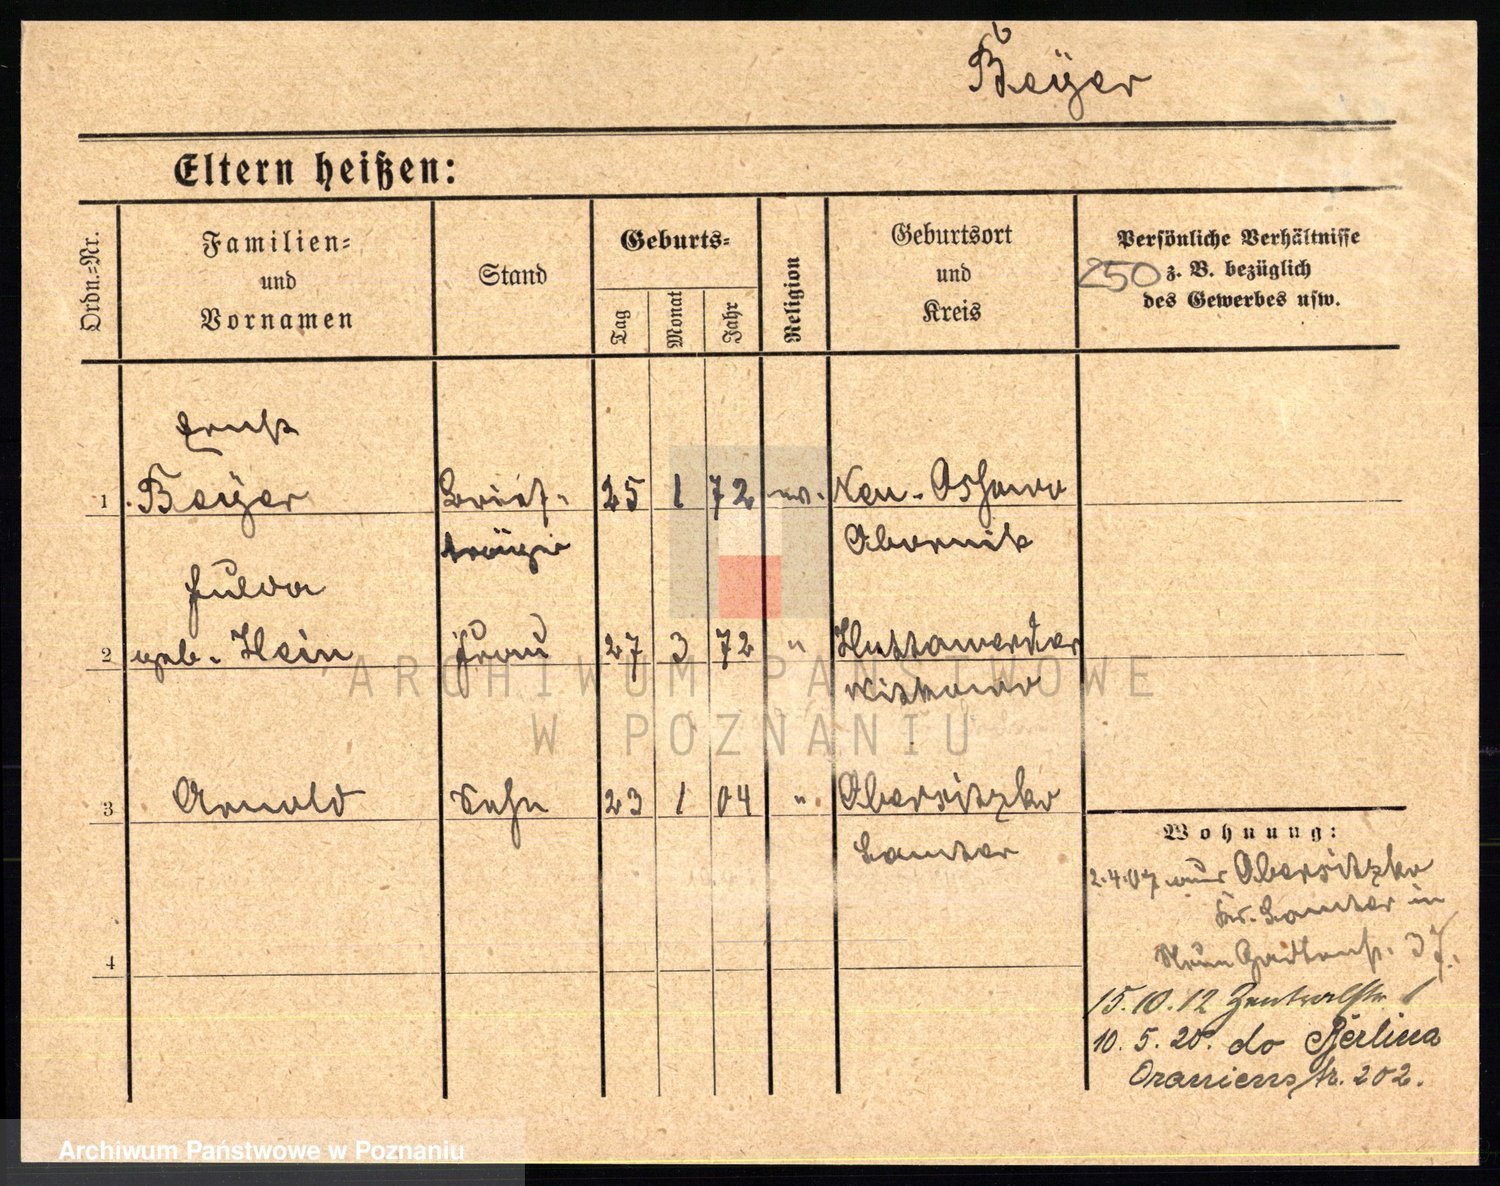 Beÿer
Eltern heißen:
Ordn.=Nr.
Familien=
und
Vornamen
Stand
Geburts=
Tag
Monat
Jahr
Religion
Geburtsort
und
Kreis
Persönliche Verhältnisse
250 z. B. bezüglich
des Gewerbes usw.
Ernst
1 Beÿer Brief- 25 1 72 ev. Neu-
träger Obornik
2 geb. Hein Frau 27 3 72 "
Witkowo
3 Arnold Sohn 23 1 04 " Obersitzko
Samter
4
Wohnung:
2.4.07 aus Obersitzko
Kr. Samter in
Neue Gartenstr. 37.
15.10.12 Zentralstr 1
10.5.20. do Berlina
Oranienstr. 202.
ARCHIWUM PAŃSTWOWE
W POZNANIU
Archiwum Państwowe w Poznaniu